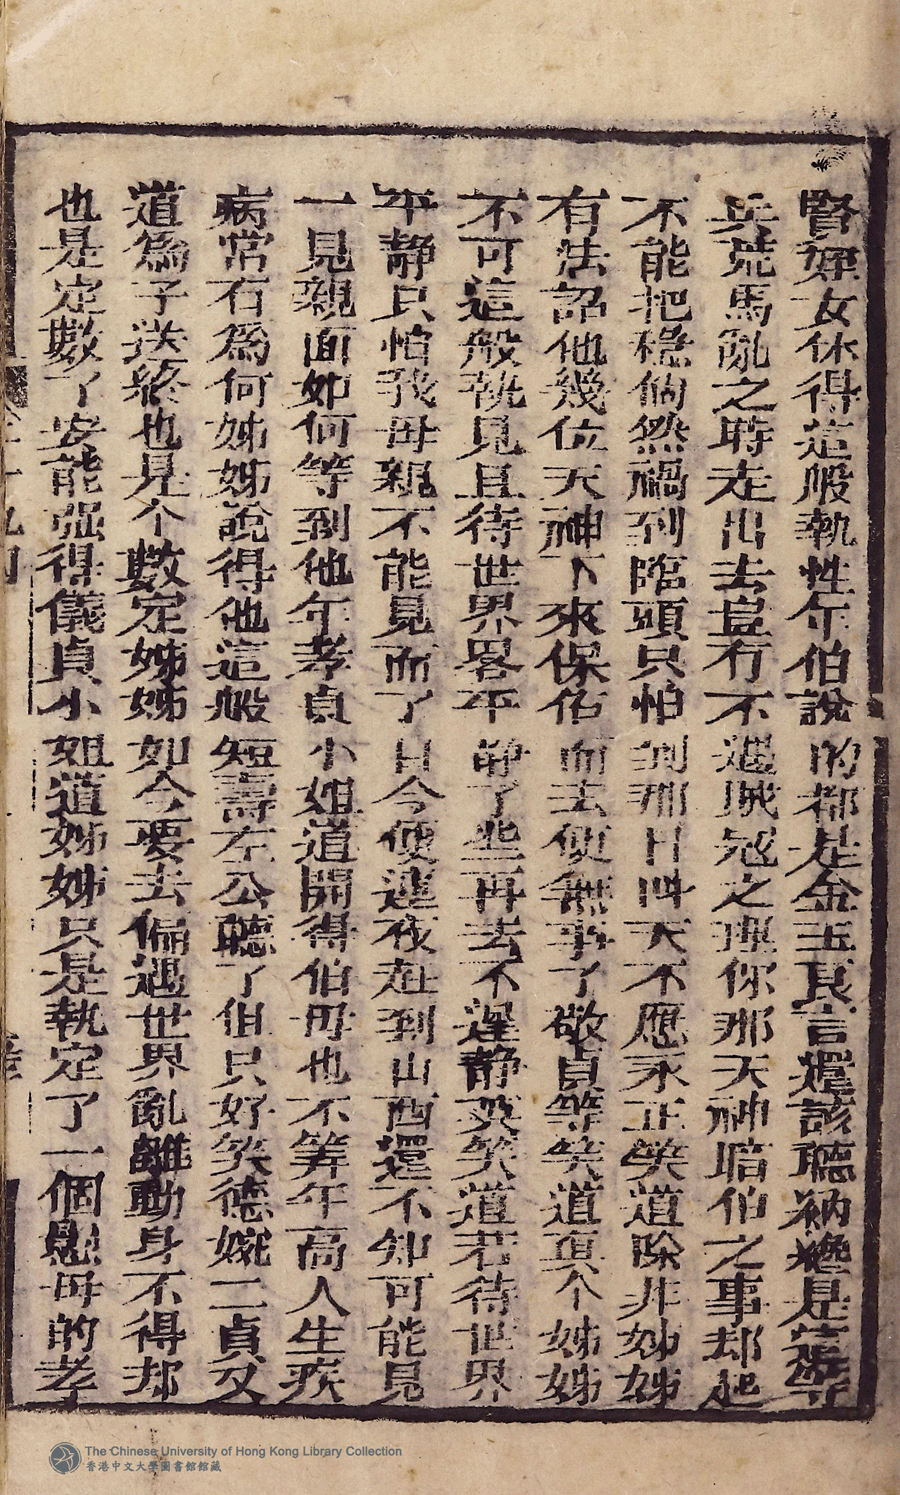 賢姪女休得這般執性年伯說的都是金玉良言還該聽納纔是這等
兵荒馬亂之時走出去豈有不遇賊冠之理你那天神暗伯之事却起
不能把穩倘然禍到臨頭只怕到那日叫天不應永正笑道除非姊姊
有法詔他幾位天神下來保佑而去便無事了敬貞等笑道真个姊姊
不可這般執見且待世界畧平静了些再去不遲静英笑道若待世界
平静只怕我母親不能見面了日今便連夜赶到山西還不知可能見
一見親面如何等到他年孝貞小姐道開得伯母也不筭年高人生疾
病常有爲何姊姊說得他這般短壽左公聽了但只好笑德婉二貞又
道爲子送終也是个數定姊姊如今要去偏遇世界亂離動身不得却
也是定數了安能强得儀貞小姐道姊姊只是執定了一個慰母的孝
The Chinese University of Hong Kong Library Collection
香港中文大學圖書館館藏